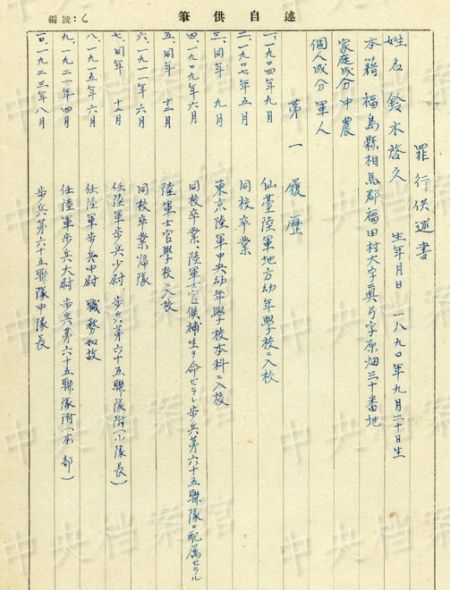 述自供筆
編號:6
罪行供述書
姓名 鈴木啓久 生年月日 一八九〇年九月二十日生
本籍 福島縣相馬郡福田村大字真弓字原畑三十番地
家庭成分 中農
個人成分 軍人
第一 履歷
一、一九〇四年九月 仙臺陸軍地方幼年學校ニ入校
二、一九〇七年五月 同校卒業
三、同年 九月 東京陸軍中央幼年學校本科ニ入校
四、一九〇九年六月 同校卒業、陸軍士官候補生ヲ命ゼラレ步兵第六十五聯隊ニ配属セラル
五、同年 十二月 陸軍士官學校ニ入校
六、一九一一年六月 同校卒業歸隊
七、同年 十二月 任陸軍步兵少尉 步兵第六十五聯隊附(小隊長)
八、一九一五年六月 任陸軍步兵中尉 職務如故
九、一九二一年四月 任陸軍步兵大尉 步兵第六十五聯隊附(本部)
一〇、一九二三年八月 步兵第六十五聯隊中隊長
中央档案馆
中央档案馆
中央档案馆